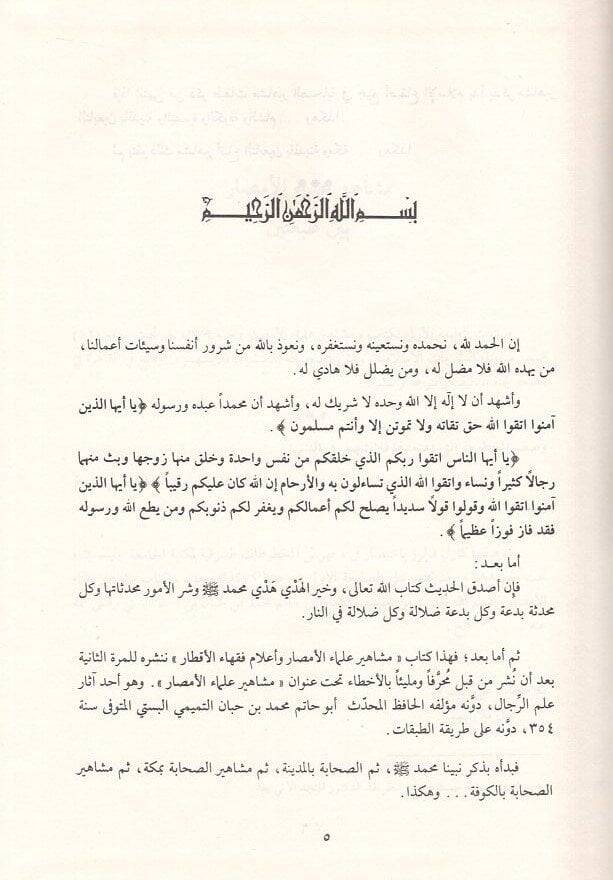 بسم الله الرحمن الرحيم
إن الحمد لله، نحمده ونستعينه ونستغفره، ونعوذ بالله من شرور أنفسنا وسيئات أعمالنا،
من يهده الله فلا مضل له، ومن يضلل فلا هادي له.
وأشهد أن لا إلٰه إلا الله وحده لا شريك له، وأشهد أن محمداً عبده ورسوله ﴿يا أيها الذين
آمنوا اتقوا الله حق تقاته ولا تموتن إلا وأنتم مسلمون﴾.
﴿يا أيها الناس اتقوا ربكم الذي خلقكم من نفس واحدة وخلق منها زوجها وبث منهما
رجالاً كثيراً ونساء واتقوا الله الذي تساءلون به والأرحام إن الله كان عليكم رقيباً﴾ ﴿يا أيها الذين
آمنوا اتقوا الله وقولوا قولاً سديداً يصلح لكم أعمالكم ويغفر لكم ذنوبكم ومن يطع الله ورسوله
فقد فاز فوزاً عظيماً﴾.
أما بعـد:
فإن أصدق الحديث كتاب الله تعالى، وخير الهَدْي هَدْي محمد ﷺ وشر الأمور محدثاتها وكل
محدثة بدعة وكل بدعة ضلالة وكل ضلالة في النار.
ثم أما بعد؛ فهذا كتاب «مشاهير علماء الأمصار وأعلام فقهاء الأقطار» ننشره للمرة الثانية
بعد أن نُشر من قبل مُحرَّفاً ومليئاً بالأخطاء تحت عنوان «مشاهير علماء الأمصار». وهو أحد آثار
علم الرِّجال، دوَّنه مؤلفه الحافظ المحدّث أبو حاتم محمد بن حبان التميمي البستي المتوفى سنة
٣٥٤، دوَّنه على طريقة الطبقات.
فبدأه بذكر نبينا محمد ﷺ، ثم الصحابة بالمدينة، ثم مشاهير الصحابة بمكة، ثم مشاهير
الصحابة بالكوفة... وهكذا.
٥